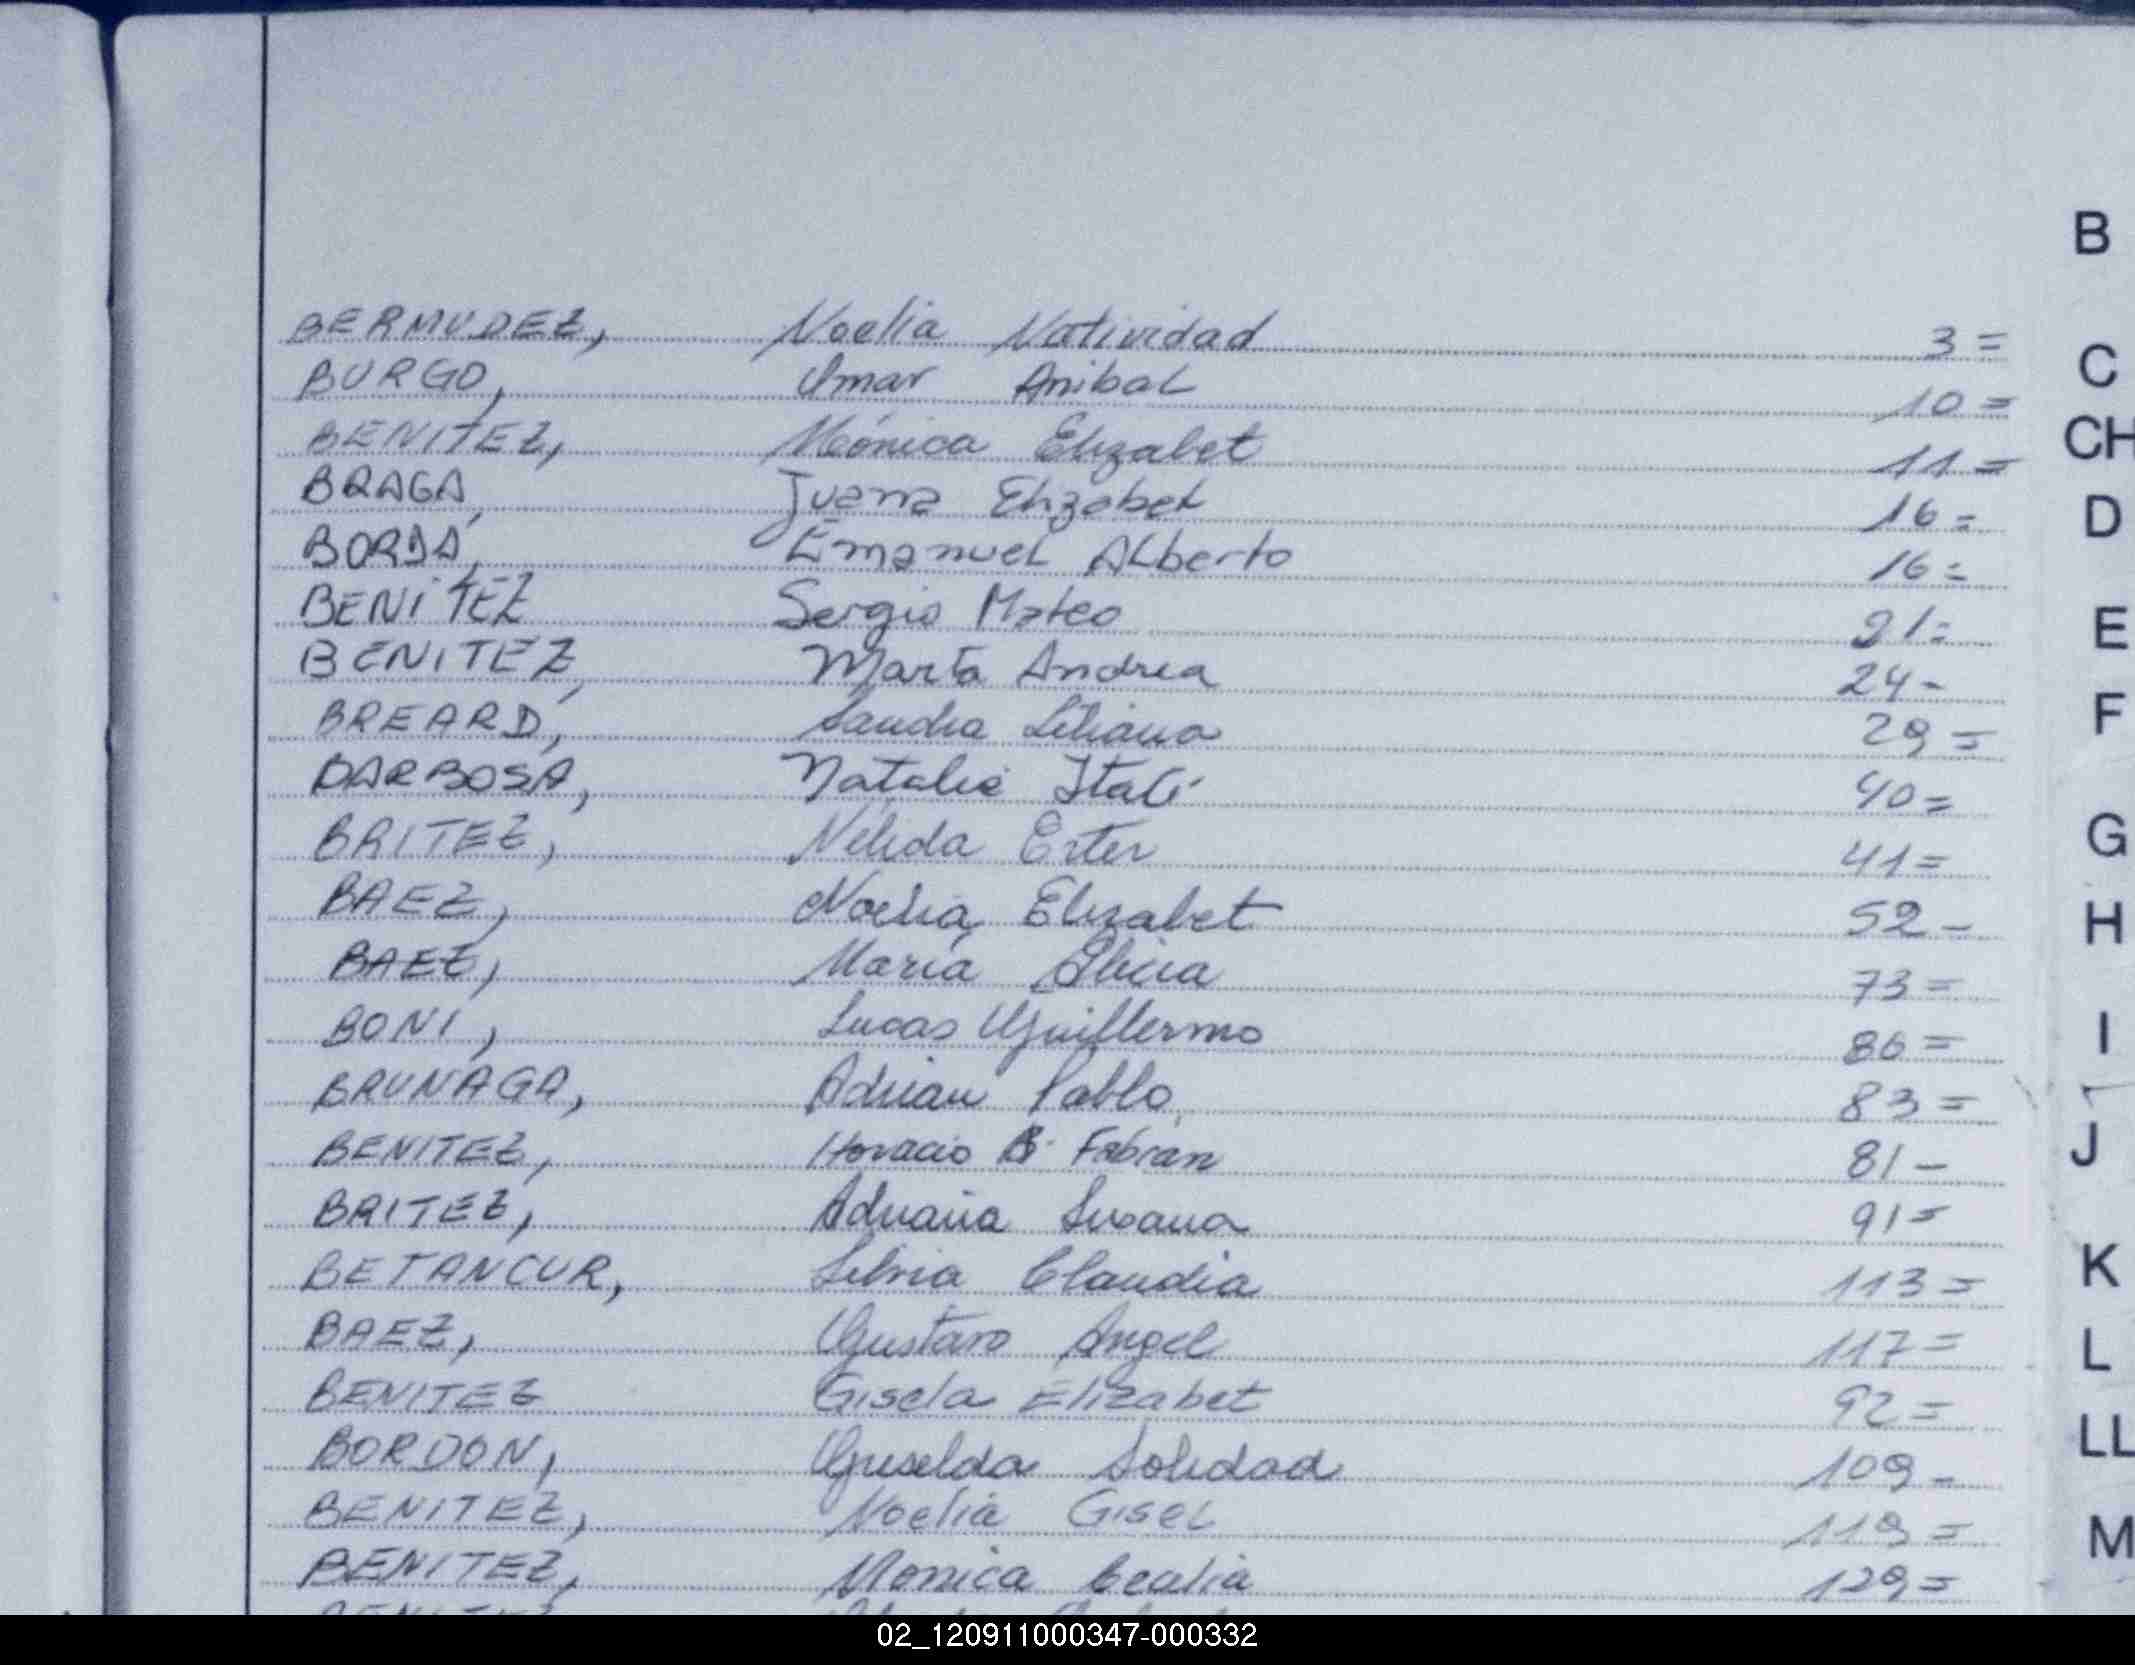 B
BERMUDEZ, Noelia Natividad 3=
C
BURGO, Omar Anibal 10=
CH
BENITEZ, Mónica Elizabet 11=
BRAGA, Juana Elizabet 16=
D
BORDA, Emanuel Alberto 16=
BENITEZ Sergio Mateo 21=
E
BENITEZ, Marta Andrea 24-
F
BREARD, Sandra Liliana 29=
BARBOSA, Natalia Itatí 40=
G
BRITEZ, Nélida Ester 41=
H
BAEZ, Noelia Elizabet 52-
BAEZ, María Alicia 73=
I
BONI, Lucas Guillermo 86=
BRUNAGA, Adrian Pablo 83=
J
BENITEZ, Horacio Fabián 81-
BRITEZ, Adriana Susana 91=
K
BETANCUR, Silvia Claudia 113=
L
BAEZ, Gustavo Angel 117=
BENITEZ Gisela Elizabet 92=
LL
BORDON, Griselda Soledad 109-
BENITEZ, Noelia Gisel 119=
M
BENITEZ, Monica Cecilia 129=
02_120911000347-000332